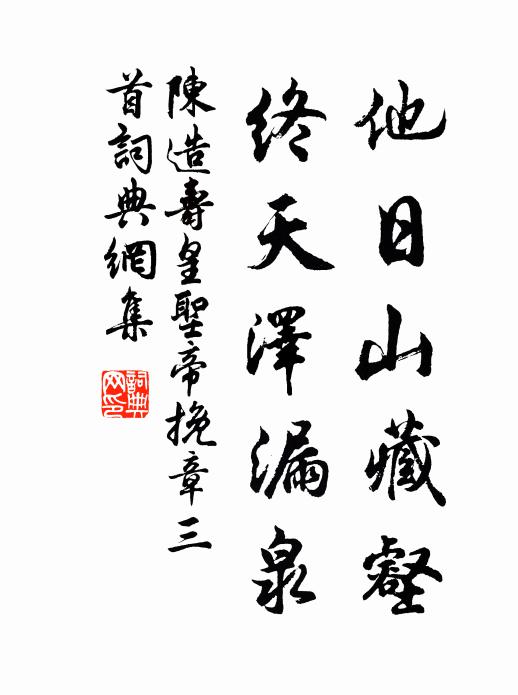 他日山藏壑
終天澤漏泉
陳造壽皇聖帝挽章三
首詞典網集
詞典網印